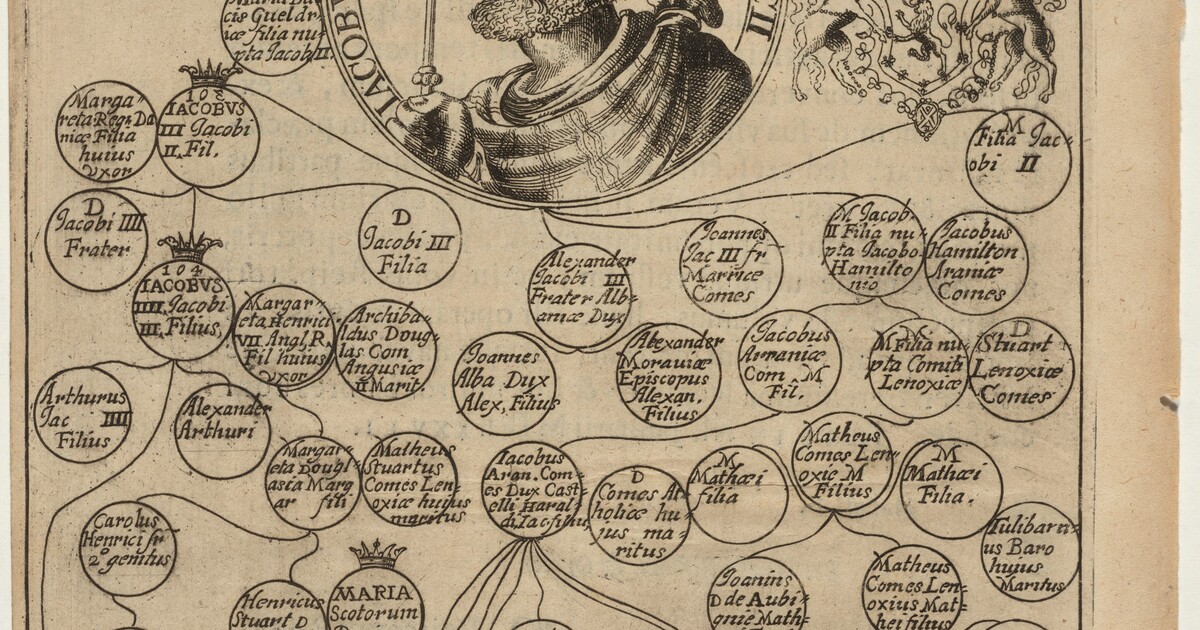 cis Gueldr-
iæ filia nu-
pta Jacob II.
IACOB
VII
Marga-
reta Reg. Da
niæ Filia
huius
vxor
108
IACOBVS
III Jacobi
II. Fil.
M
Filia Jac-
obi II
D
Jacobi IIII
Frater
D
Jacobi III
Filia
Alexander
Jacobi III
Frater Alb-
aniæ Dux
Ioannes
Jac III fr
Marriæ
Comes
M Jacob.
II Filia nu-
pta Jacobo
Hamilto
nio
Jacobus
Hamilton
Araniæ
Comes
104
IACOBVS
IIII. Jacobi
III. Filius.
Margar-
eta Henrici
VII Angl. R.
Fil huius
vxor
Archiba-
ldus Doug-
las Com
Angusiæ
II Marit.
Ioannes
Alba Dux
Alex, Filius
Alexander
Moraviæ
Episcopus
Alexan.
Filius
Jacobus
Arraniæ
Com. M
Fil.
M Filia nu-
pta Comiti
Lenoxiæ
D
Stuart
Lenoxiæ
Comes
Arthurus
Jac IIII
Filius
Alexander
Arthuri
Margar-
eta Dougl-
asia Marg
ar fili
Matheus
Stuartus
Comes Len-
oxiæ hujus
maritus
Iacobus
Aran. Com-
es Dux Cast-
elli Haral-
di Iac filius
D
Comes At-
holiæ hu-
jus ma-
ritus
M
Mathæi
filia
Matheus
Comes Len-
oxiæ M
Filius
M
Mathæi
Filia.
Tulibarn-
us Baro
huius
Maritus
Carolus
Henrici fr
2° genitus
Henricus
Stuart D
MARIA
Scotorum
Ioanins
D de Aubi-
gnie Math-
Matheus
Comes Len-
oxius Mat-
hei filius